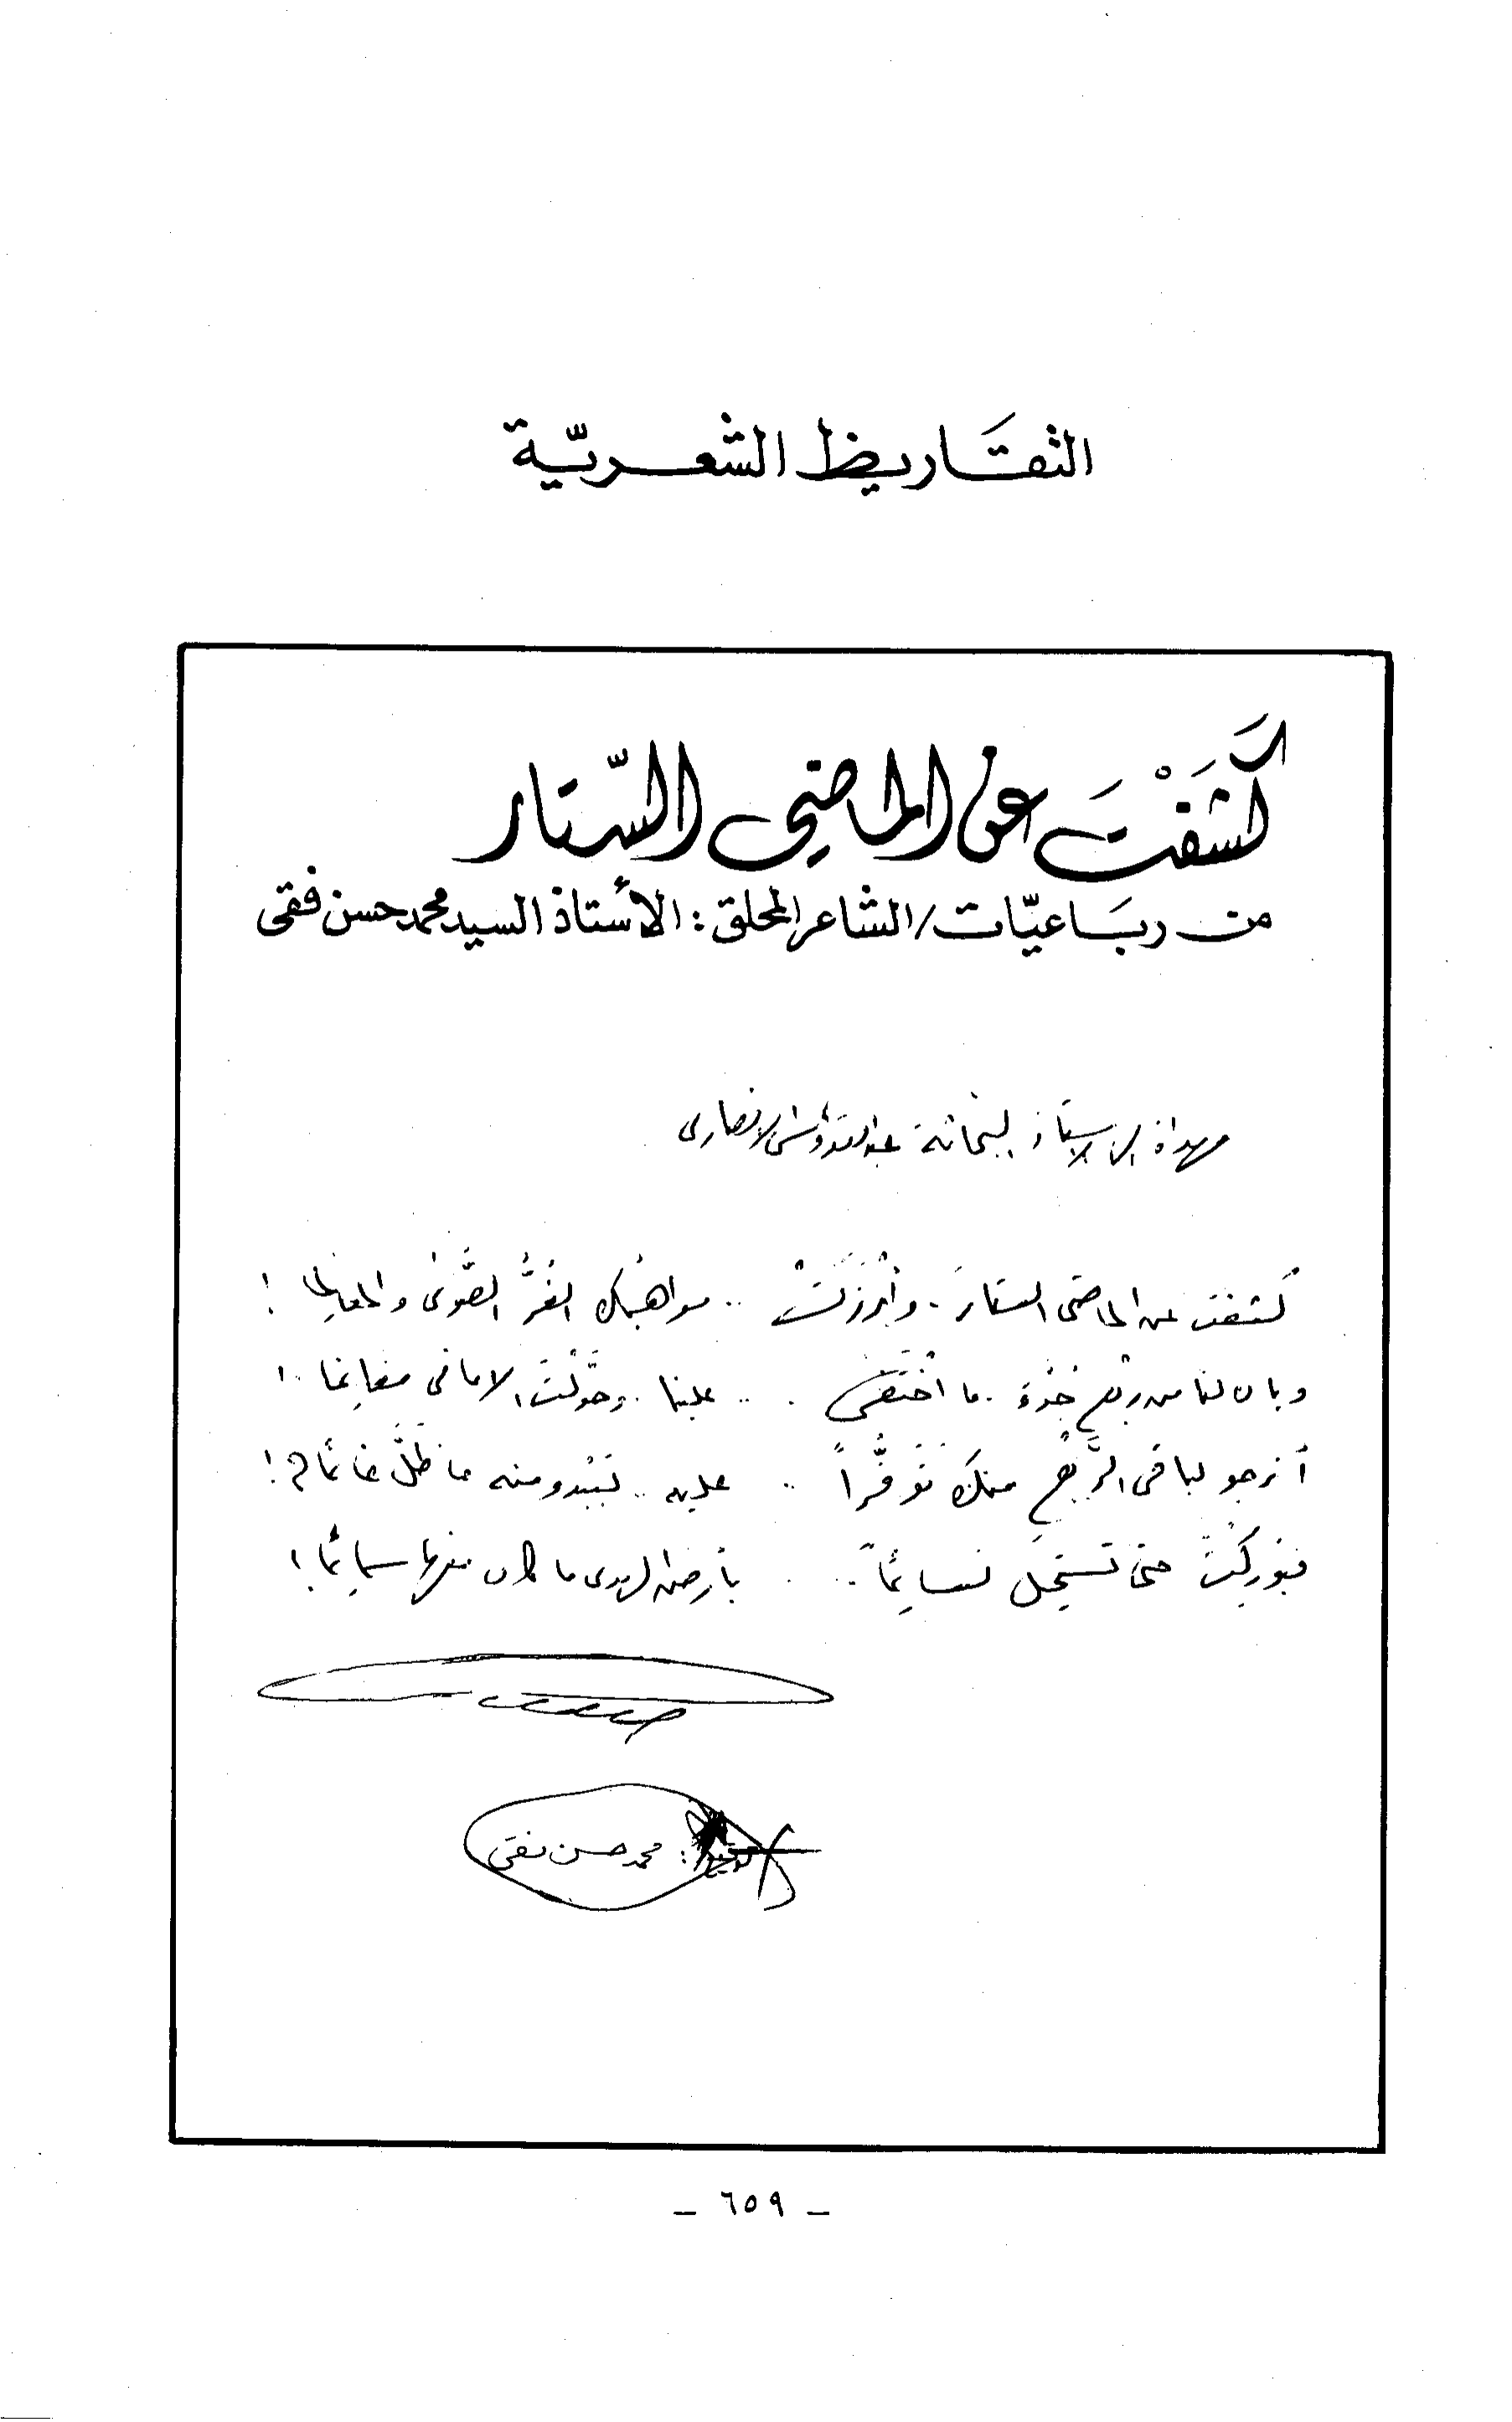 التقَاريظ الشعريّة
كَشَفْتَ عن الماضي السّتار
من ربَاعيّات / الشاعر المحلق : الأستاذ السيد محمد حسن فقى
مهداة الى الاستاذ البحاثة عبد القدوس الانصارى
كشفت عن الماضى الستارَ . وأبْرَزَتْ .. مواهبُك الغُرُّ الصُّوَى والمعالما !
وبان لنا من ربْع جُدَّة . ما اخْتَفَى .. علينا . وحَوَّلْتَ الامانى مغانما .. !
أنرجو لباقى الرَّبْع منك تَوَفُّراً .. عليه .. تَبْدو منه ما ظَلَّ غائماً ؟ !
فبُورِكْتَ حتى تستحيل نسائماً .. بأرض الهدى ما كان منها سمائما !
محمد حسن فقى
– ٦٥٩ –